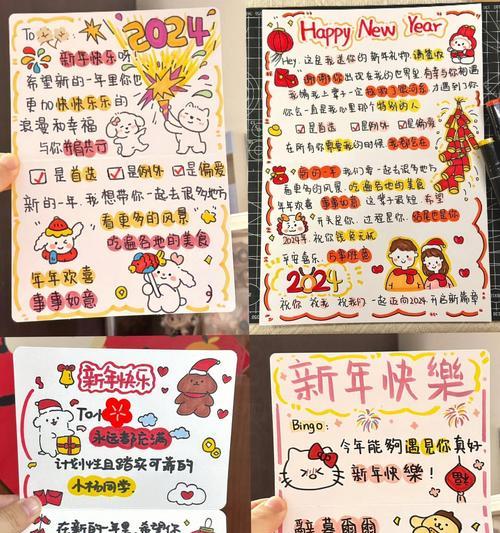 To
2024
新年快乐呀!
希望新的一年里你也
更加快快乐乐的
浪漫和幸福
与你并肩共行
是首选 是例外 是偏爱
新的一年,我想带你一起去很多地方
看更多的风景
吃遍各地的美食
年年欢喜
事事如意
Happy New Year
Hey,这是我送你的新年礼物,请查收
谢谢你出现在我的世界里,有幸与你相遇
特别的人
是首选 是例外 是偏爱
在所有你需要我的时候,我都会在
新的一年我们要一起去很多地方
看更多的风景,吃遍各地的美食
年年欢喜 事事如意 这辈子很短,希望
开头是你,过程是你,结尾也是你
2024年,祝你
平安喜乐,万事胜意
2024
祝你 祝我 祝我们 一起迈向2024,开启新篇章
新年快乐
To:
永远都充满
计划性且踏实可靠的
小杨同学.
在新的一年里,希望你
新年快樂
Bingo:
今年能夠遇見你真好
新年快樂!
福
辭暮爾爾